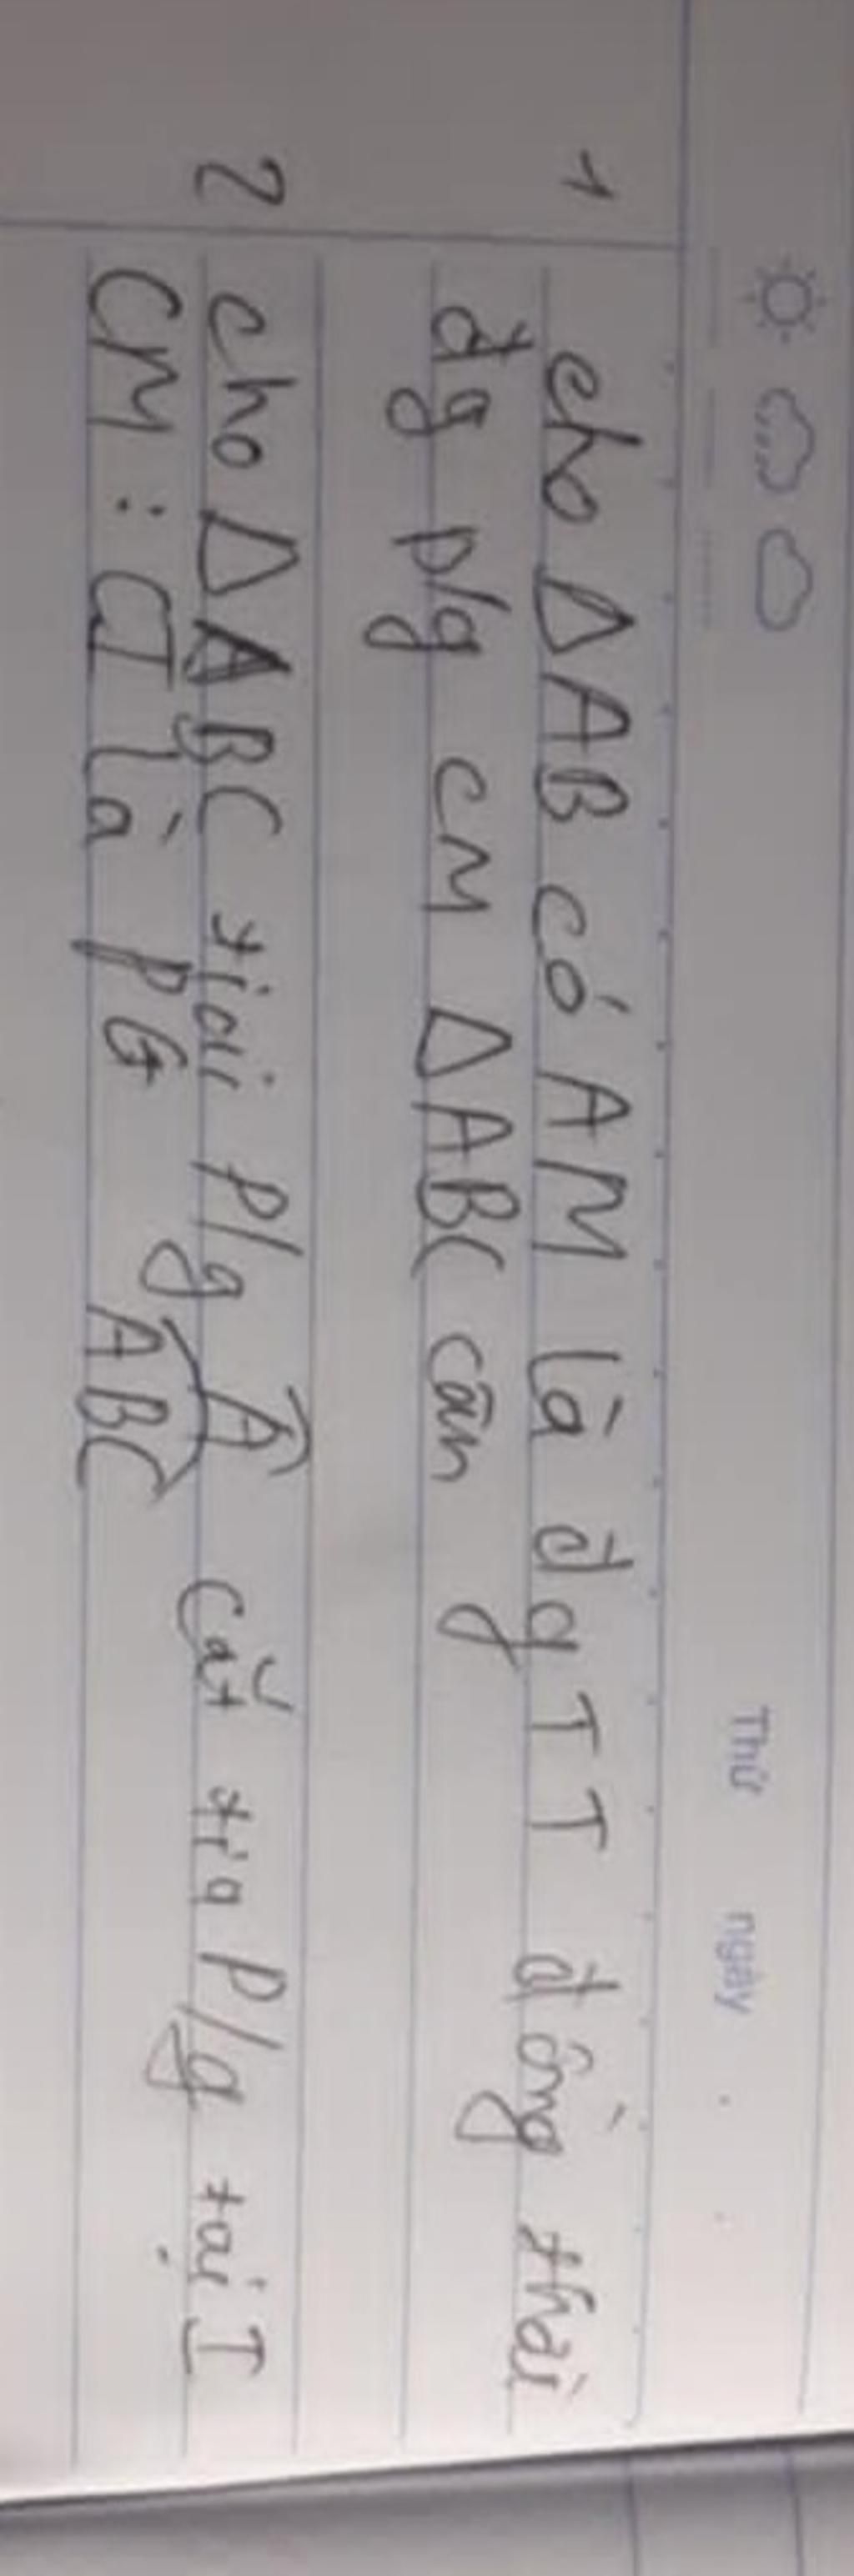 Thứ ngày
1 cho Δ AB có AM là đg TT đồng thời
đg p/g CM Δ ABC cân
2 cho Δ ABC tiai P/g Â cắt tia P/g tại I
CM : CI là PG ABC